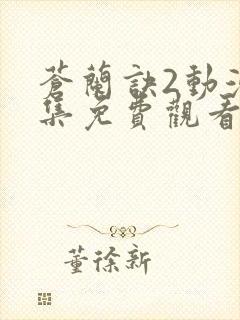 蒼蘭訣2動
集免費觀看
董徐新